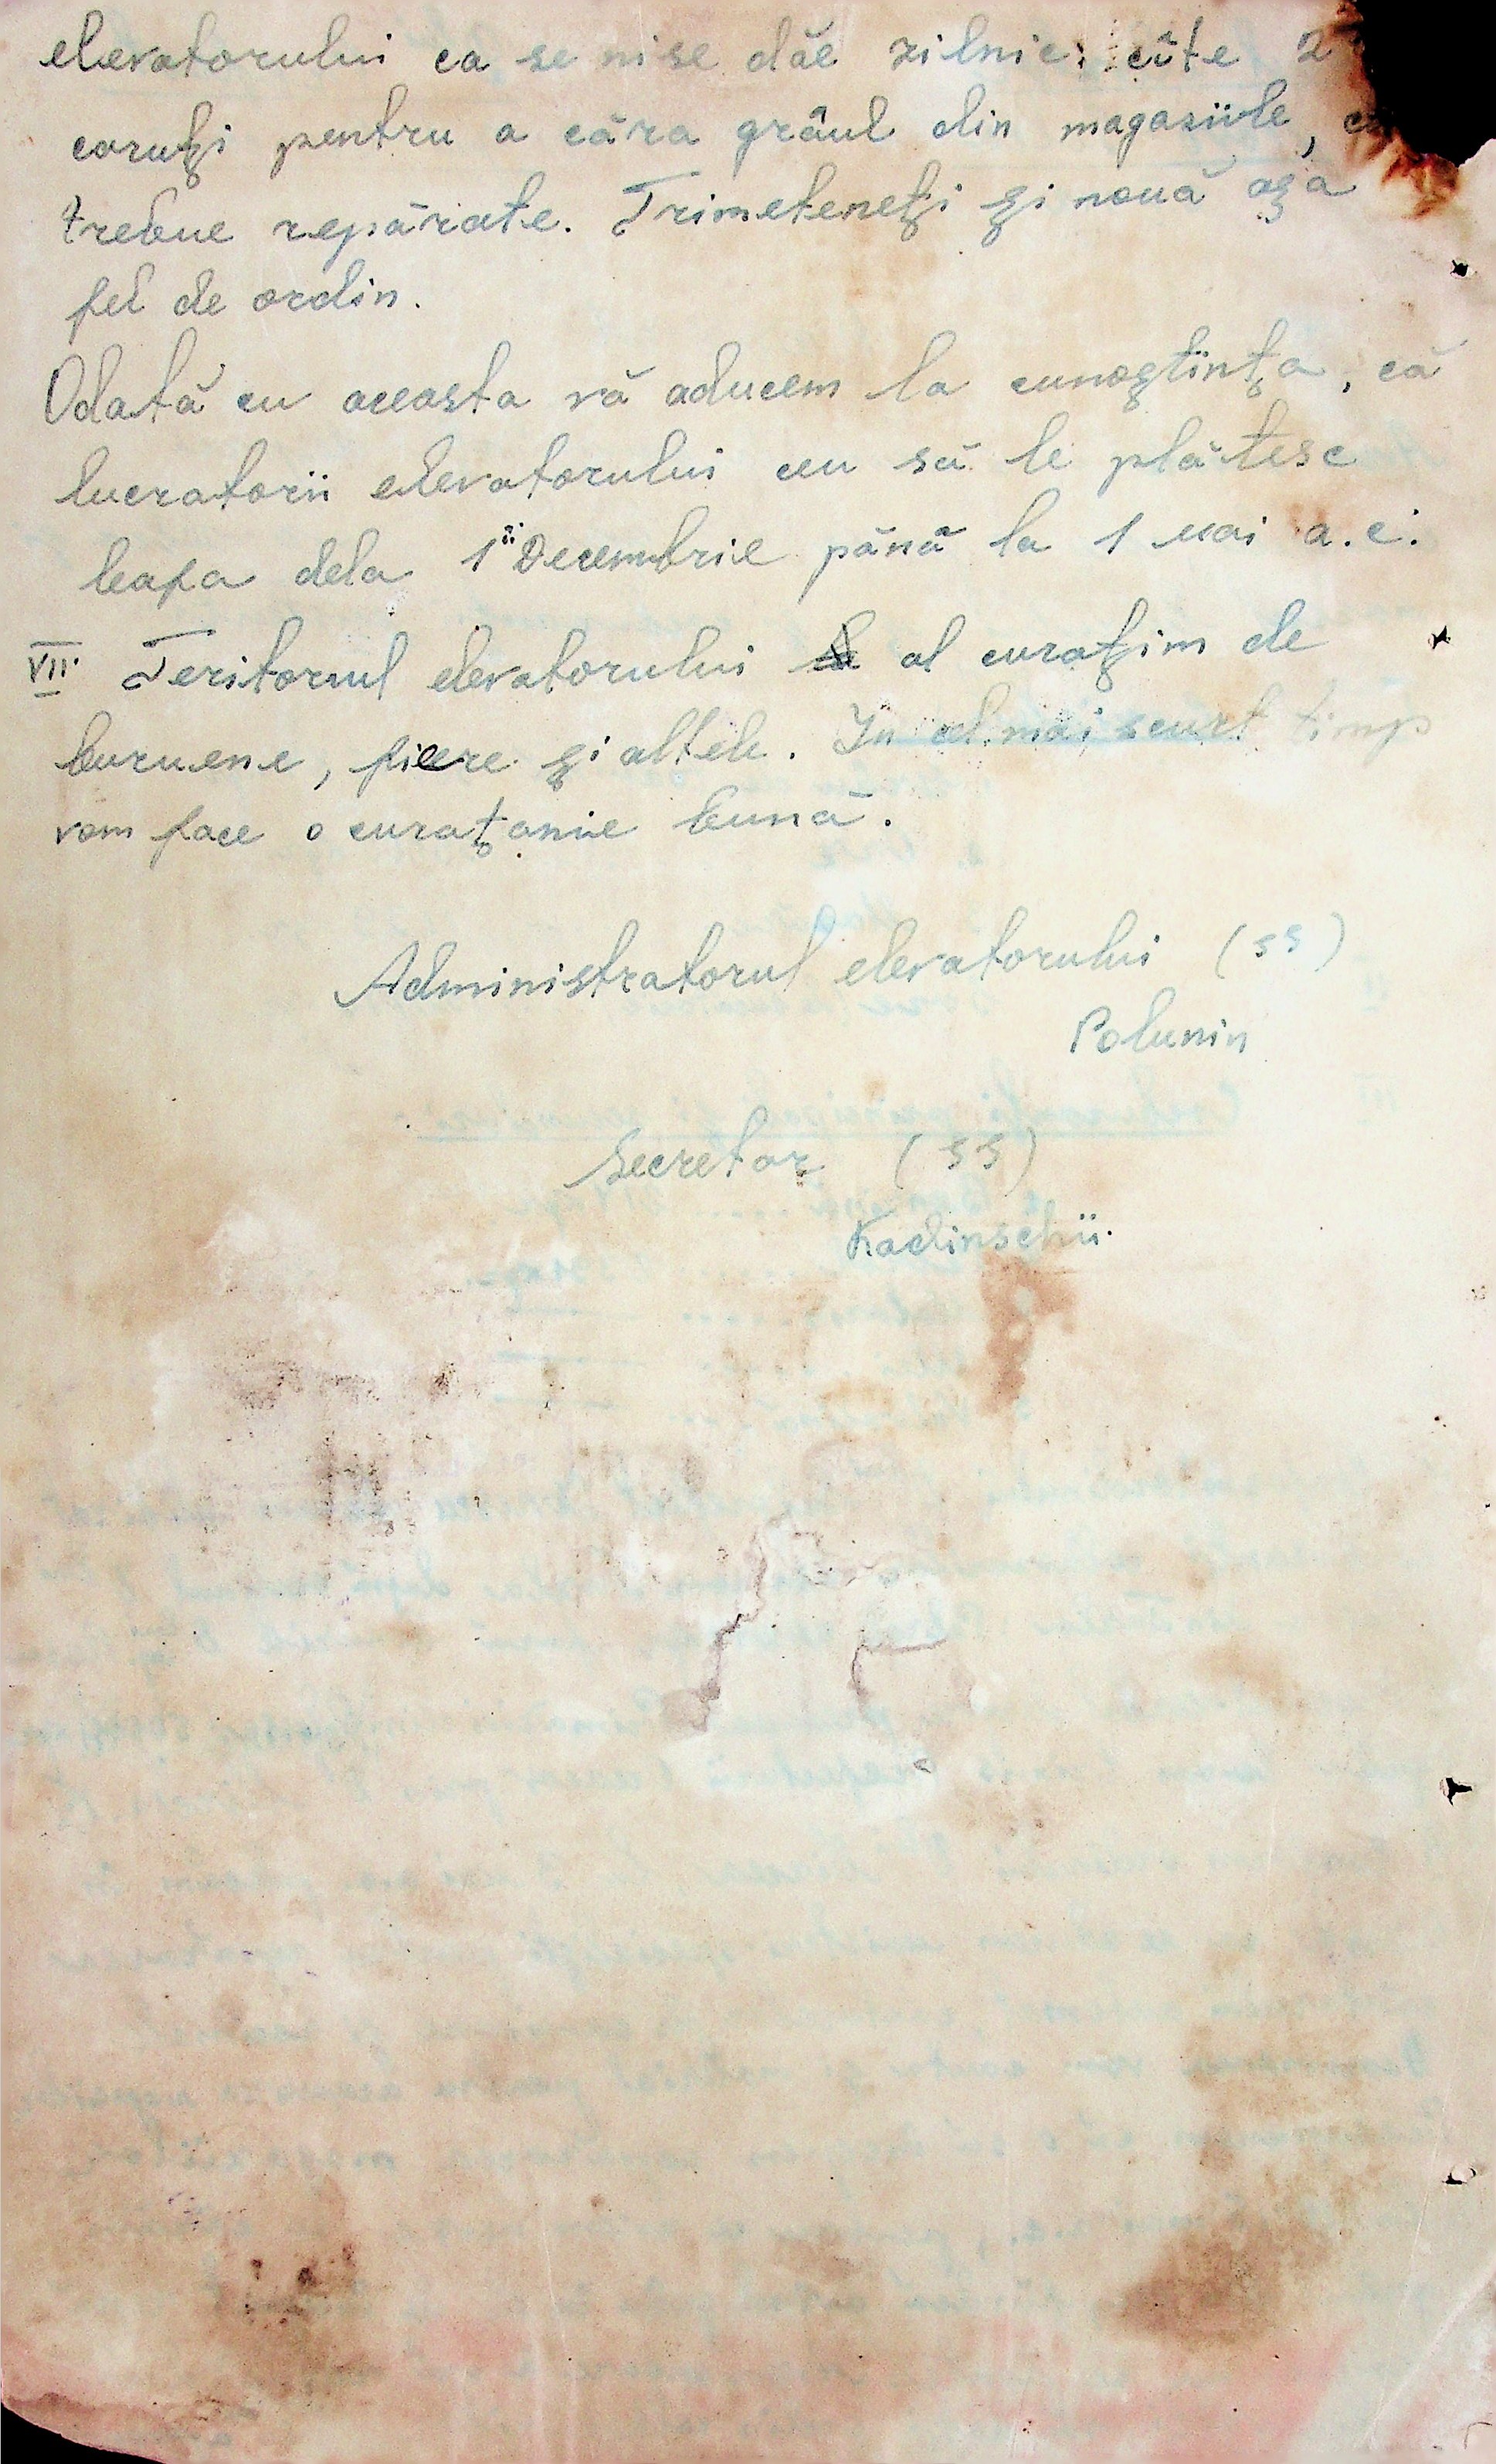 elevatorului ca se nise dăe zilnic câte 2
caruți pentru a căra grâul din magaziile,
trebue repărate. Trimeteneți și nouă așa
fel de ordin.
Odată cu aceasta vă aducem la cunoștința, că
lucratorii elevatorului cer să le plătesc
leafa dela 1 Decembrie până la 1 mai a.c.
VII. Teritoriul elevatorului al curațim de
buruene, fiere și altele. In cel mai scurt timp
vom face o curațanie bună.
Administratorul elevatorului (ss)
Polunin
Secretar (ss)
Kadinschii.